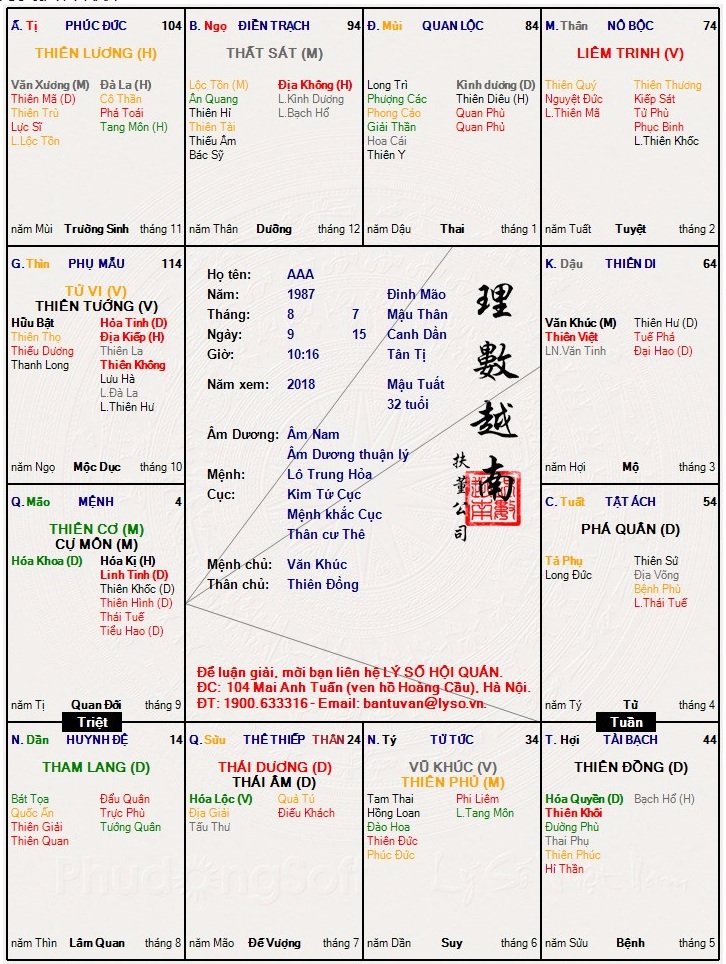 Ấ. Tị PHÚC ĐỨC 104
THIÊN LƯƠNG (H)
Văn Xương (M) Đà La (H)
Thiên Mã (D) Cô Thần
Thiên Trù Phá Toái
Lực Sĩ Tang Môn (H)
L.Lộc Tồn
năm Mùi Trường Sinh tháng 11
B. Ngọ ĐIỀN TRẠCH 94
THẤT SÁT (M)
Lộc Tồn (M) Địa Không (H)
Ân Quang L.Kình Dương
Thiên Hỉ L.Bạch Hổ
Thiên Tài
Thiếu Âm
Bác Sỹ
năm Thân Dưỡng tháng 12
Đ. Mùi QUAN LỘC 84
Long Trì Kình dương (D)
Phượng Các Thiên Diêu (H)
Phong Cáo Quan Phù
Giải Thần Quan Phủ
Hoa Cái
Thiên Y
năm Dậu Thai tháng 1
M. Thân NÔ BỘC 74
LIÊM TRINH (V)
Thiên Quý Thiên Thương
Nguyệt Đức Kiếp Sát
L.Thiên Mã Tử Phù
Phục Binh
L.Thiên Khốc
năm Tuất Tuyệt tháng 2
G. Thìn PHỤ MẪU 114
TỬ VI (V)
THIÊN TƯỚNG (V)
Hữu Bật Hỏa Tinh (D)
Thiên Thọ Địa Kiếp (H)
Thiếu Dương Thiên La
Thanh Long Thiên Không
Lưu Hà
L.Đà La
L.Thiên Hư
năm Ngọ Mộc Dục tháng 10
Họ tên: AAA
Năm: 1987 Đinh Mão
Tháng: 8 7 Mậu Thân
Ngày: 9 15 Canh Dần
Giờ: 10:16 Tân Tị
Năm xem: 2018 Mậu Tuất
32 tuổi
Âm Dương: Âm Nam
Âm Dương thuận lý
Mệnh: Lô Trung Hỏa
Cục: Kim Tứ Cục
Mệnh khắc Cục
Thân cư Thê
Mệnh chủ: Văn Khúc
Thân chủ: Thiên Đồng
理數越南
扶董公司
Để luận giải, mời bạn liên hệ LÝ SỐ HỘI QUÁN.
ĐC: 104 Mai Anh Tuấn (ven hồ Hoàng Cầu), Hà Nội.
ĐT: 1900.633316 - Email: bantuvan@lyso.vn.
K. Dậu THIÊN DI 64
Văn Khúc (M) Thiên Hư (D)
Thiên Việt Tuế Phá
LN.Văn Tinh Đại Hao (D)
năm Hợi Mộ tháng 3
Q. Mão MỆNH 4
THIÊN CƠ (M)
CỰ MÔN (M)
Hóa Khoa (D) Hóa Kị (H)
Linh Tinh (D)
Thiên Khốc (D)
Thiên Hình (D)
Thái Tuế
Tiểu Hao (D)
năm Tị Quan Đới tháng 9
Triệt
C. Tuất TẬT ÁCH 54
PHÁ QUÂN (D)
Tả Phụ Thiên Sứ
Long Đức Địa Võng
Bệnh Phù
L.Thái Tuế
năm Tý Tử tháng 4
Tuần
N. Dần HUYNH ĐỆ 14
THAM LANG (D)
Bát Tọa Đẩu Quân
Quốc Ấn Trực Phù
Thiên Giải Tướng Quân
Thiên Quan
năm Thìn Lâm Quan tháng 8
Q. Sửu THÊ THIẾP THÂN 24
THÁI DƯƠNG (D)
THÁI ÂM (D)
Hóa Lộc (V) Quả Tú
Địa Giải Điếu Khách
Tấu Thư
năm Mão Đế Vượng tháng 7
N. Tý TỬ TỨC 34
VŨ KHÚC (V)
THIÊN PHỦ (M)
Tam Thai Phi Liêm
Hồng Loan L.Tang Môn
Đào Hoa
Thiên Đức
Phúc Đức
năm Dần Suy tháng 6
T. Hợi TÀI BẠCH 44
THIÊN ĐỒNG (D)
Hóa Quyền (D) Bạch Hổ (H)
Thiên Khôi
Đường Phù
Thai Phụ
Thiên Phúc
Hỉ Thần
năm Sửu Bệnh tháng 5